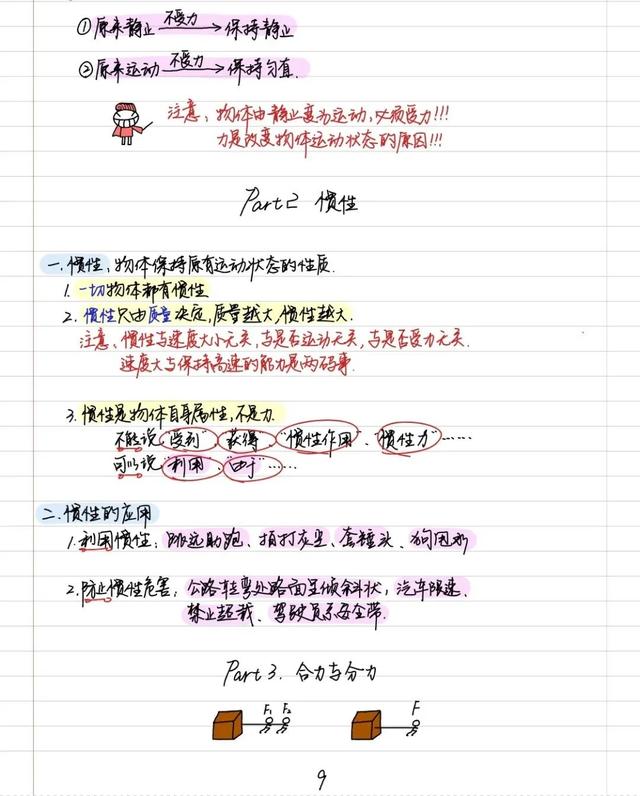 ①原来静止 不受力 保持静止
②原来运动 不受力 保持匀直.
注意:物体由静止变为运动,必须受力!!!
力是改变物体运动状态的原因!!!
Part 2 惯性
一.惯性:物体保持原有运动状态的性质.
1.一切物体都有惯性
2.惯性只由质量决定,质量越大,惯性越大.
注意:惯性与速度大小无关,与是否运动无关,与是否受力无关.
速度大与保持高速的能力是两码事.
3.惯性是物体自身属性,不是力.
不能说"受到""获得""惯性作用"、"惯性力"……
可以说"利用"、"由于"……
二.惯性的应用
1.利用惯性:跳远助跑、拍打灰尘、套锤头、狗甩水
2.防止惯性危害:公路转弯处路面呈倾斜状,汽车限速、
禁止超载、驾驶员系安全带.
Part 3. 合力与分力
F₁ F₂ F
9